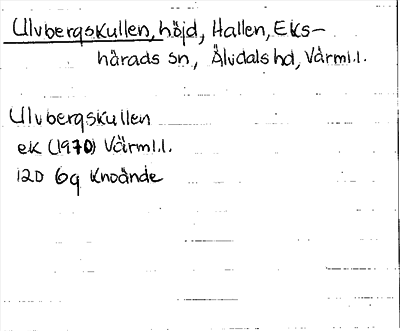 Ulvbergskullen, höjd, Hallen, Eks-
härads sn, Älvdals hd, Värml.l.
Ulvbergskullen
eK (1970) Värml.l.
12D 6g Knoände